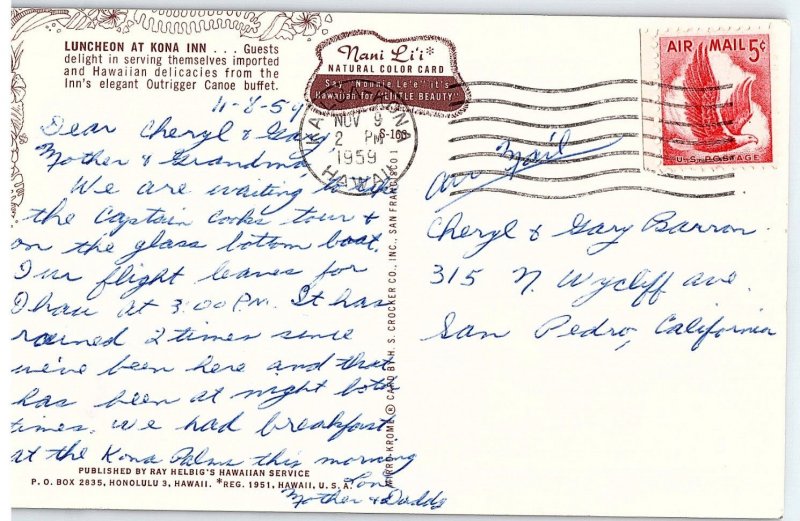 LUNCHEON AT KONA INN . . . Guests
delight in serving themselves imported
and Hawaiian delicacies from the
Inn's elegant Outrigger Canoe buffet.
Nani Li'i*
NATURAL COLOR CARD
Say "Nonnie Lee" it's
Hawaiian for "LITTLE BEAUTY"
11-8-59
Dear Cheryl & Gary
Mother & Grandma,
We are waiting to take
the Captain Cooks tour &
on the glass bottom boat.
Our flight leaves for
at 3:00 P.M. It has
rained 2 times since
we've been here and that
has been at night both
times. We had breakfast
at the Kona Palms this morning
Love
Mother & Daddy
PUBLISHED BY RAY HELBIG'S HAWAIIAN SERVICE
P. O. BOX 2835, HONOLULU 3, HAWAII. *REG. 1951, HAWAII, U. S. A.
NOV 9
2 PM
1959
HAWAII
S-166
MIRRO-KROME ® CARD BY H. S. CROCKER CO., INC., SAN FRANCISCO 1
AIR MAIL 5¢
U.S. POSTAGE
Air Mail
Cheryl & Gary Barron
315 N. Wycliff ave.
San Pedro, California